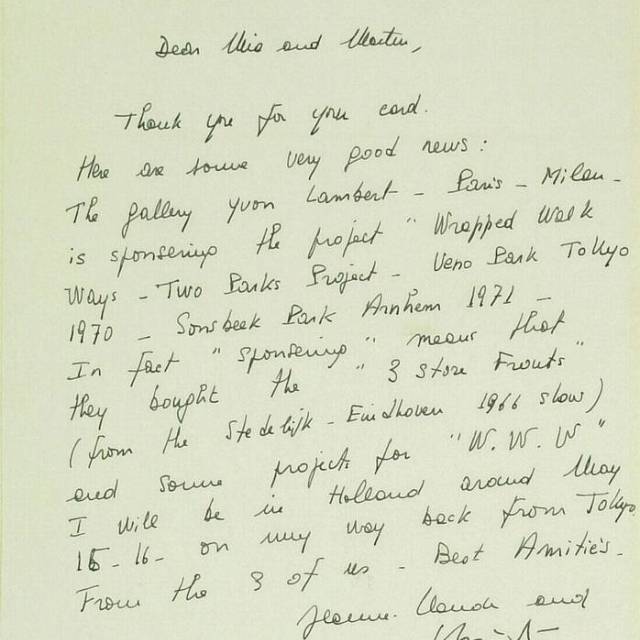 Dear Mia and Martin,
Thank you for your card.
Here are some very good news :
The gallery Yvon Lambert - Paris - Milan -
is sponsering the project " Wrapped Walk
Ways - Two Parks Project - Ueno Park Tokyo
1970 - Sonsbeek Park Arnhem 1971 -
In fact " sponsering " means that
they bought the " 3 Store Fronts "
( from the Stedelijk - Eindhoven 1966 show )
and some projects for " W. W. W "
I will be in Holland around May
15 - 16 - on my way back from Tokyo
From the 3 of us - Best Amitiés -
Jeanne-Claude and